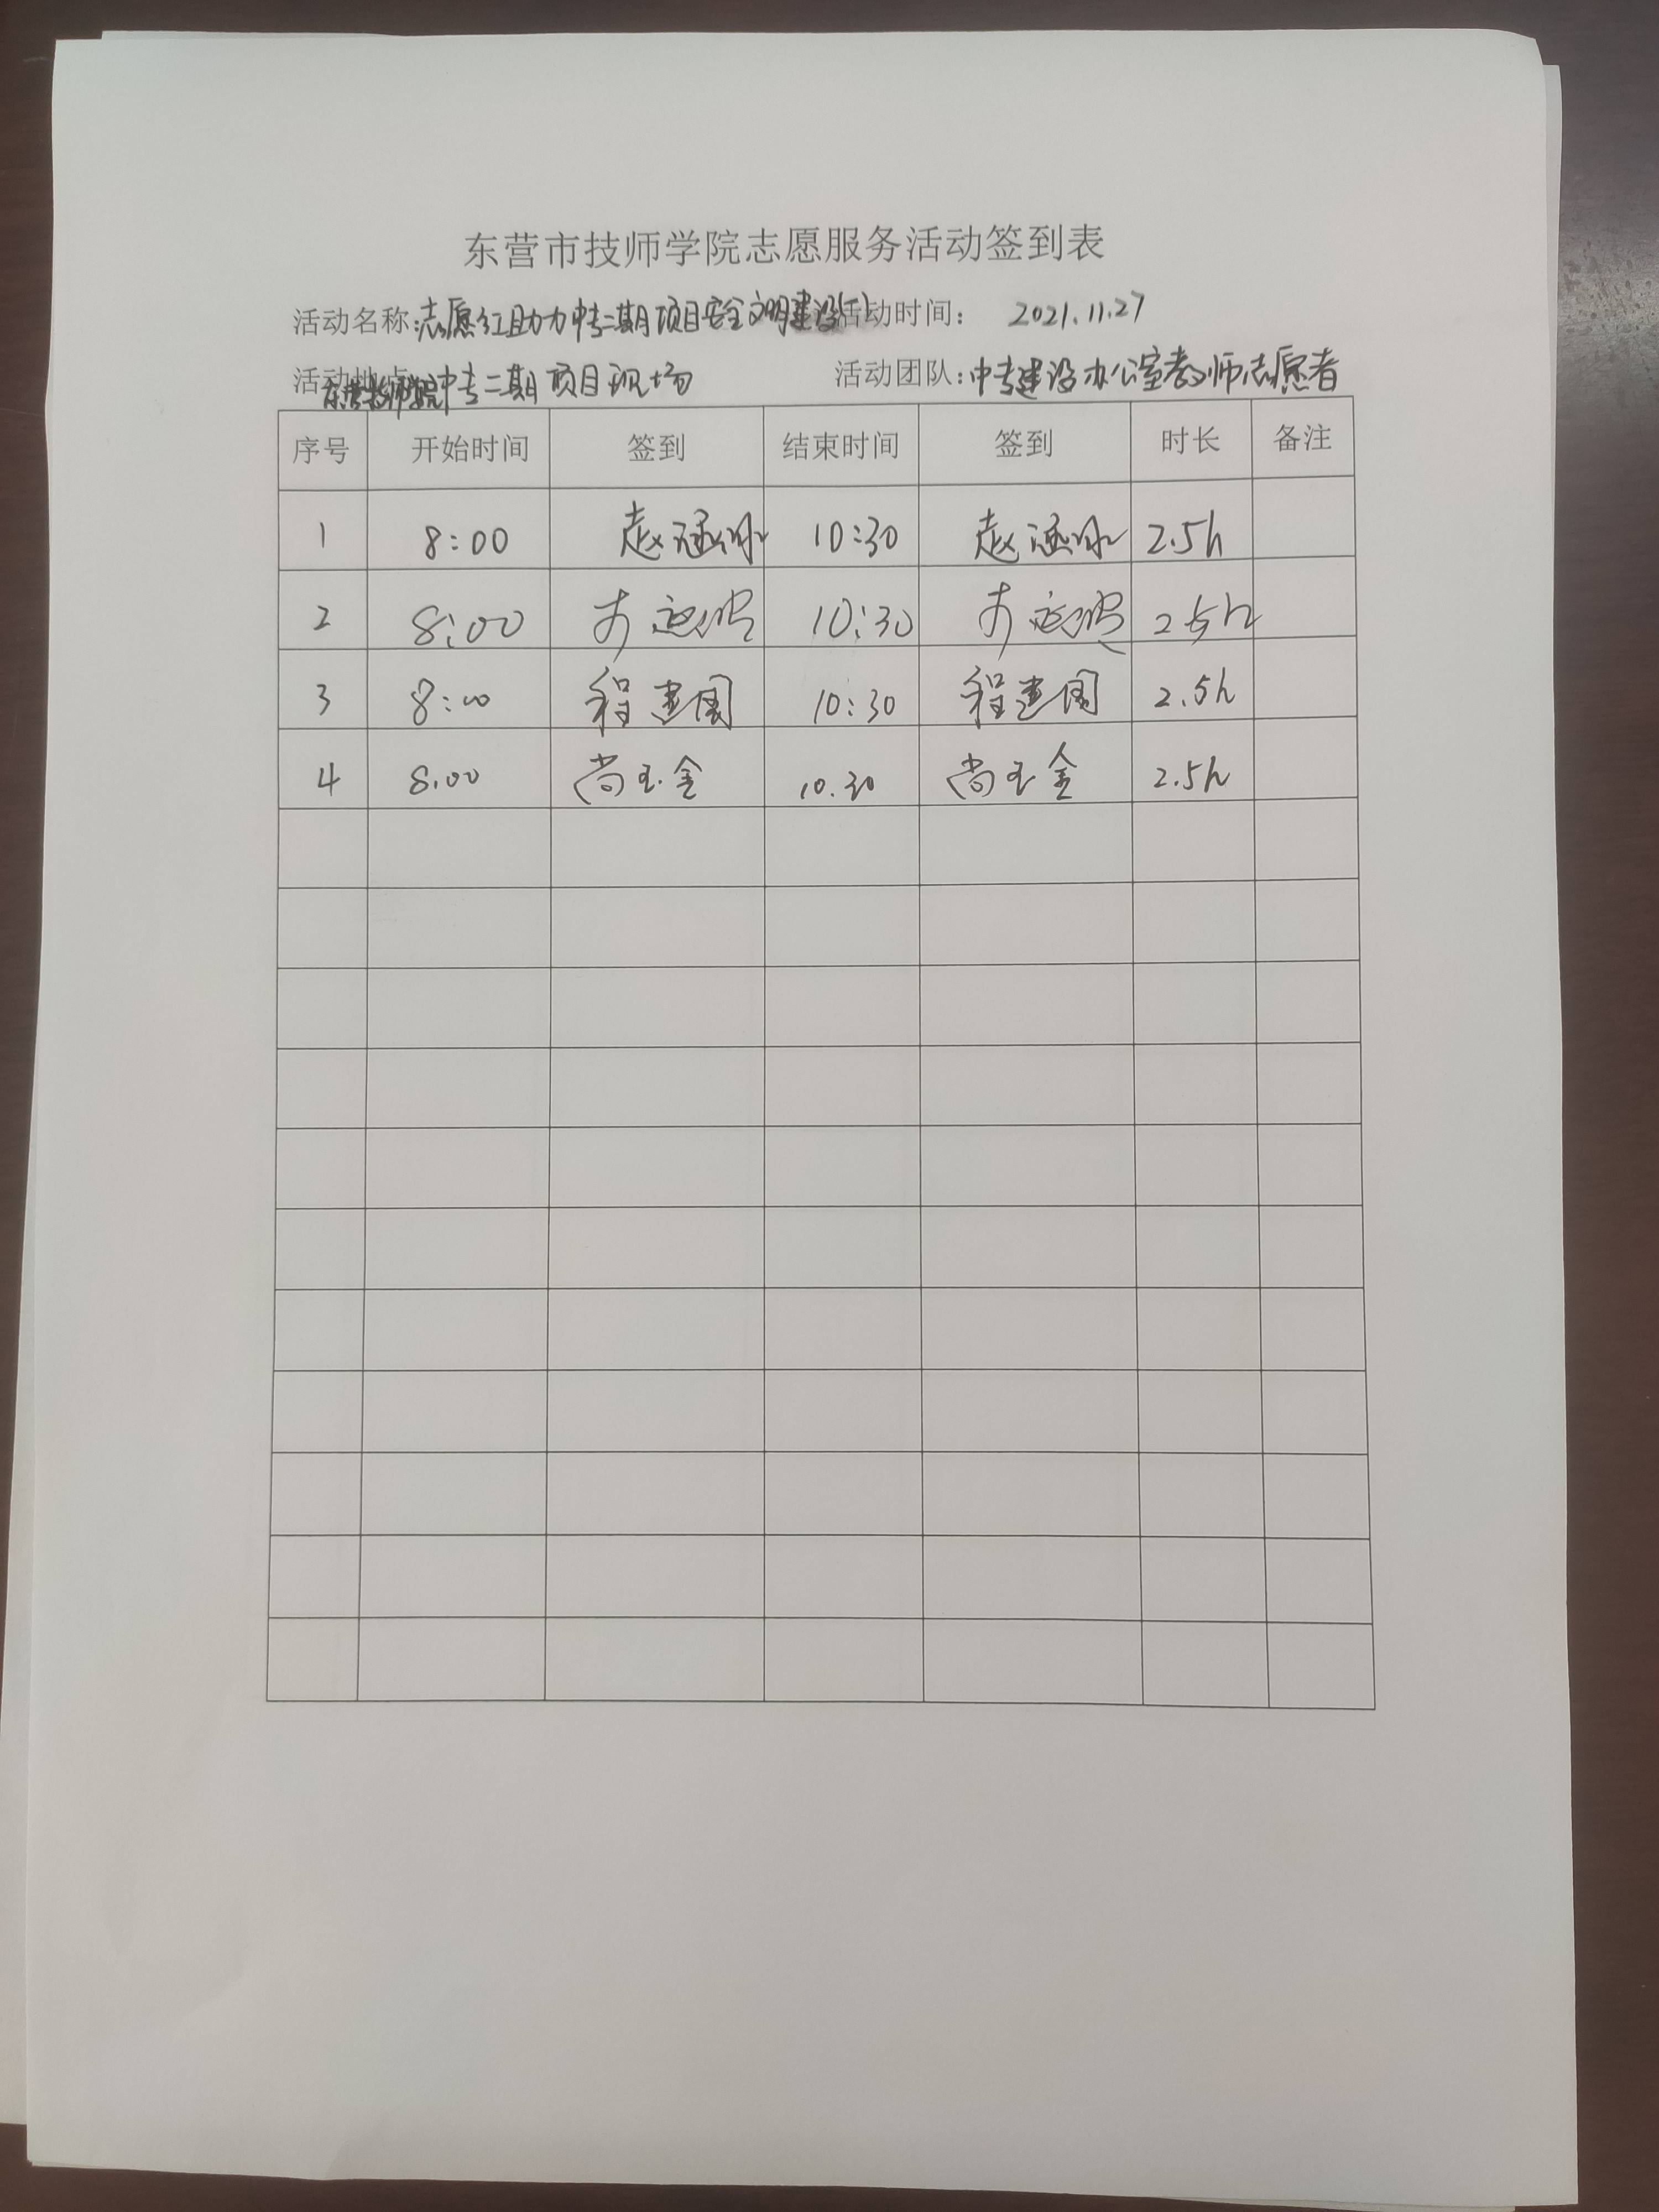 东营市技师学院志愿服务活动签到表
活动名称:志愿红助力中专二期项目安全文明建设(一)活动时间: 2021.11.27
活动地点 东营技师学院中专二期项目现场 活动团队:中专建设办公室教师志愿者
序号 开始时间 签到 结束时间 签到 时长 备注
1 8:00 赵涵冰 10:30 赵涵冰 2.5h
2 8:00 10:30 2.5h
3 8:00 程建国 10:30 程建国 2.5h
4 8.00 尚玉金 10.30 尚玉金 2.5h